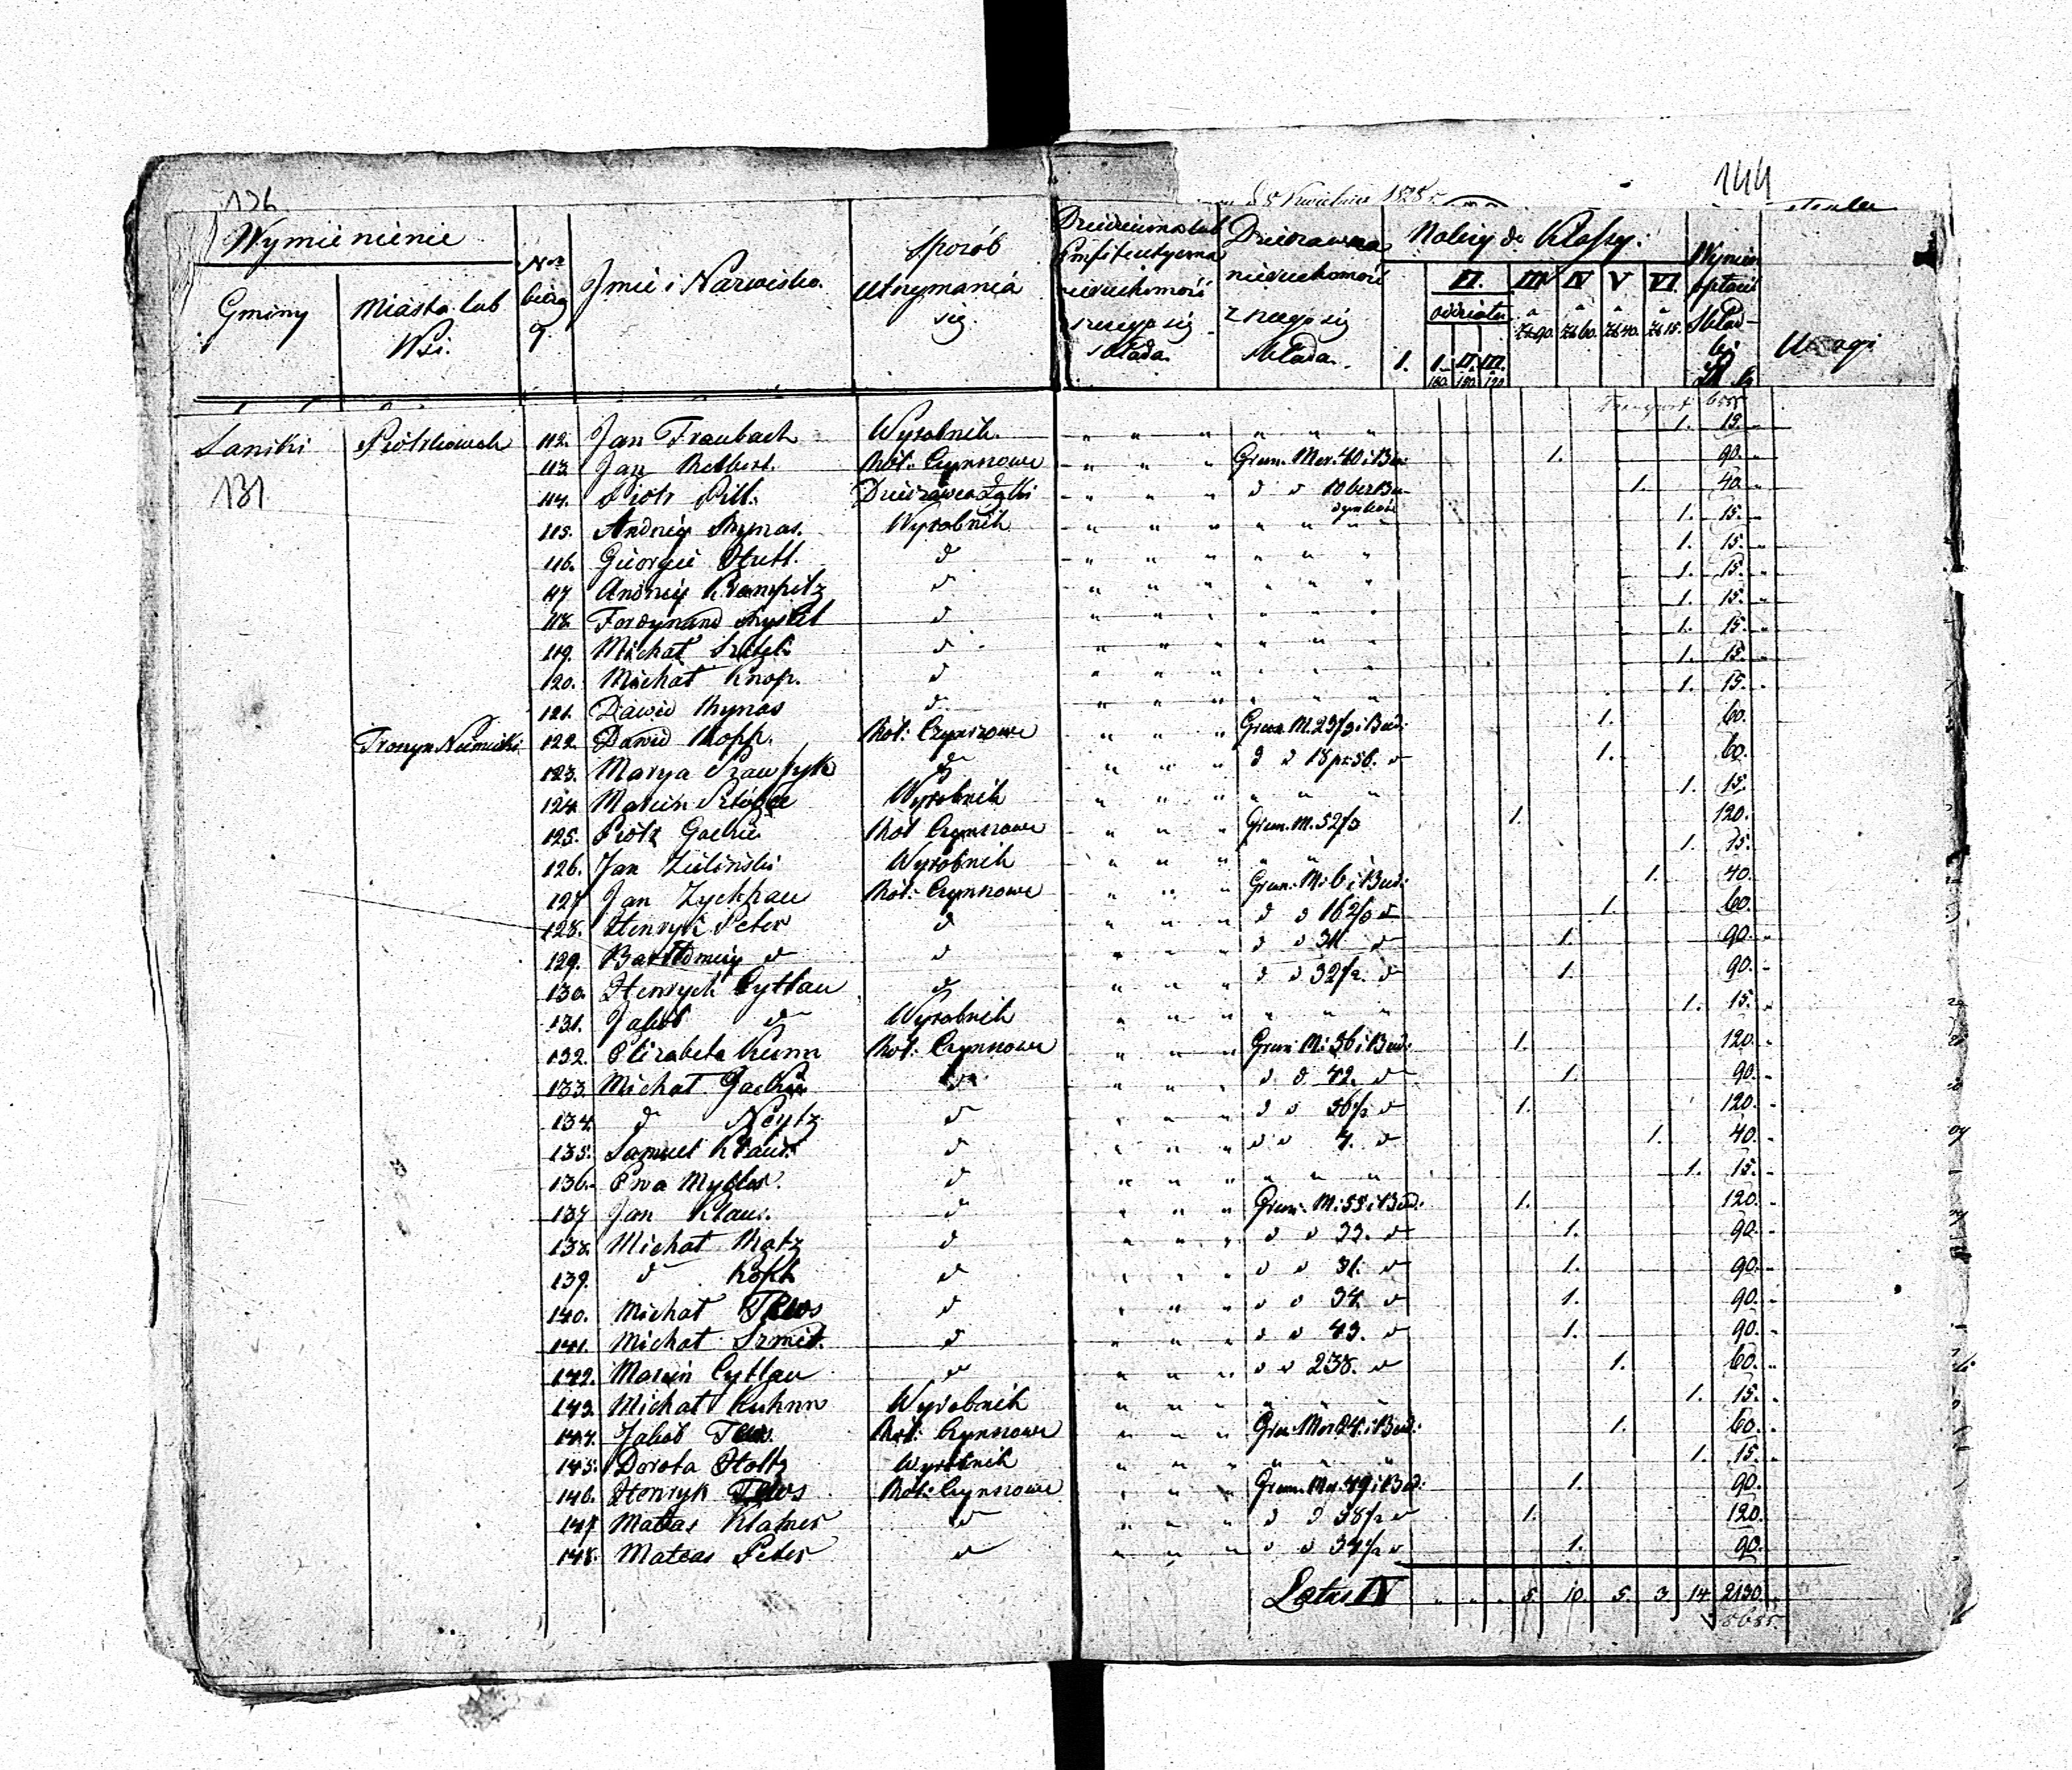 136.
144
d 8 Kwietnia 1828 r.
Wymienienie
Gminy
Miasta lub Wsi.
Nro bieżą
Jmie i Nazwisko.
Sposób utrzymania się.
Dziedziczna lub Emfiteutyczna nieruchomość z czego się składa.
Dzierżawna nieruchomość z czego się składa.
Należy do Klassy:
1.
II. oddziału
I. 180. II. 150. III. 120
III a Zł 90.
IV a Zł 60.
V a Zł 40.
VI. a Zł 15.
Uwagi
Transport 6555
Łaniki Piotrkowek 112. Jan Traubach Wyrobnik. " " " " " " 1. 15. "
131
113 Jan Rol: Czynszowe " " " Grun. Mor. 40 i Bu: 1. 90. "
114. Piotr Pill. Dzierżawca Łąki " " " d d 10 bez Bu- 1. 40
115. Andrzej Rymas. Wyrobnik " " " " " " 1. 15. "
116. d " " " " " " 1. 15. "
117 Andrzej Krampitz d " " " " " " 1. 15. "
118. Ferdynand d " " " " " " 1. 15. "
119. Michał d " " " " " " 1. 15. "
120. Michał Knop. d " " " " " " 1. 15. "
121. Dawid Rymas d " " " " " " 1. 15. "
Troszyn Niemiecki 122. Dawid Kopp. Rol: Czynszowe " " " Grun. M. 23/3 i Bud: 1. 60.
123. Marya d " " " d d 18 d 1. 60.
124. Marcin Wyrobnik " " " " " " 1. 15.
125. Piotr Rol Czynszowe " " " Grun. M. 52/3 1. 120.
126. Jan Zieliński Wyrobnik " " " " " 1. 15.
127 Jan Zychlau Rol: Czynszowe " " " Grun: M: 6 i Bud: 1. 40.
128. Henryk Peter d " " " d d 16 2/3 d 1. 60.
129. Bartłomiej d d " " " d d 31 d 1. 90. "
130. Henrych Cytlau d " " " d d 32/2. d 1. 90. "
131. Jakób d Wyrobnik " " " " " " 1. 15. "
132. Elizabeta Kunn Rol: Czynszowe " " " Grun: M: 36 i Bud: 1. 120. "
133 Michał d " " " d d 42. d 1. 90. "
134. d Neytz d " " " d d 56/2 d 1. 120. "
135. Samuel Klaus d " " " d d 4. d 1. 40. "
136. Ewa d " " " " " " 1. 15. "
137 Jan Klaus. d " " " Grun: M: 55 i Bud: 1. 120. "
138. Michał Ratz d " " " d d 33. d 1. 90. "
139. d Koph d " " " d d 31. d 1. 90. "
140. Michał Tews d " " " d d 34 d 1. 90. "
141. Michał Szmit. d " " " d d 43. d 1. 90. "
142. Marcin Cytlau d " " " d d 238. d 1. 60. "
143. Michał Kuhnn Wyrobnik " " " " " " 1. 15. "
144. Jakób Tews. Rol: Czynszowe " " " Gru: Mor 24. i Bud: 1. 60. "
145. Dorota Holtz Wyrobnik " " " " " " 1. 15. "
146. Henryk Tews Rol: Czynszowe " " " Grun. Mor. 49 i Bud: 1. 90. "
147 Mateas d " " " d d 58/2 d 1. 120. "
148. Mateas Peter d " " " d d 34/2 d 1. 90. "
Latus IV " " " 5. 10. 5. 3. 14. 2130.
8685.